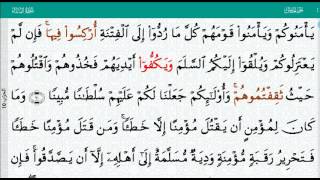 يَأْمَنُوكُمْ وَيَأْمَنُوا۟ قَوْمَهُمْ كُلَّ مَا رُدُّوٓا۟ إِلَى ٱلْفِتْنَةِ أُرْكِسُوا۟ فِيهَا ۚ فَإِن لَّمْ
يَعْتَزِلُوكُمْ وَيُلْقُوٓا۟ إِلَيْكُمُ ٱلسَّلَمَ وَيَكُفُّوٓا۟ أَيْدِيَهُمْ فَخُذُوهُمْ وَٱقْتُلُوهُمْ
حَيْثُ ثَقِفْتُمُوهُمْ ۚ وَأُو۟لَـٰٓئِكُمْ جَعَلْنَا لَكُمْ عَلَيْهِمْ سُلْطَـٰنًا مُّبِينًا ٩١ وَمَا
كَانَ لِمُؤْمِنٍ أَن يَقْتُلَ مُؤْمِنًا إِلَّا خَطَـًٔا ۚ وَمَن قَتَلَ مُؤْمِنًا خَطَـًٔا
فَتَحْرِيرُ رَقَبَةٍ مُّؤْمِنَةٍ وَدِيَةٌ مُّسَلَّمَةٌ إِلَىٰٓ أَهْلِهِۦٓ إِلَّآ أَن يَصَّدَّقُوا۟ ۚ فَإِن